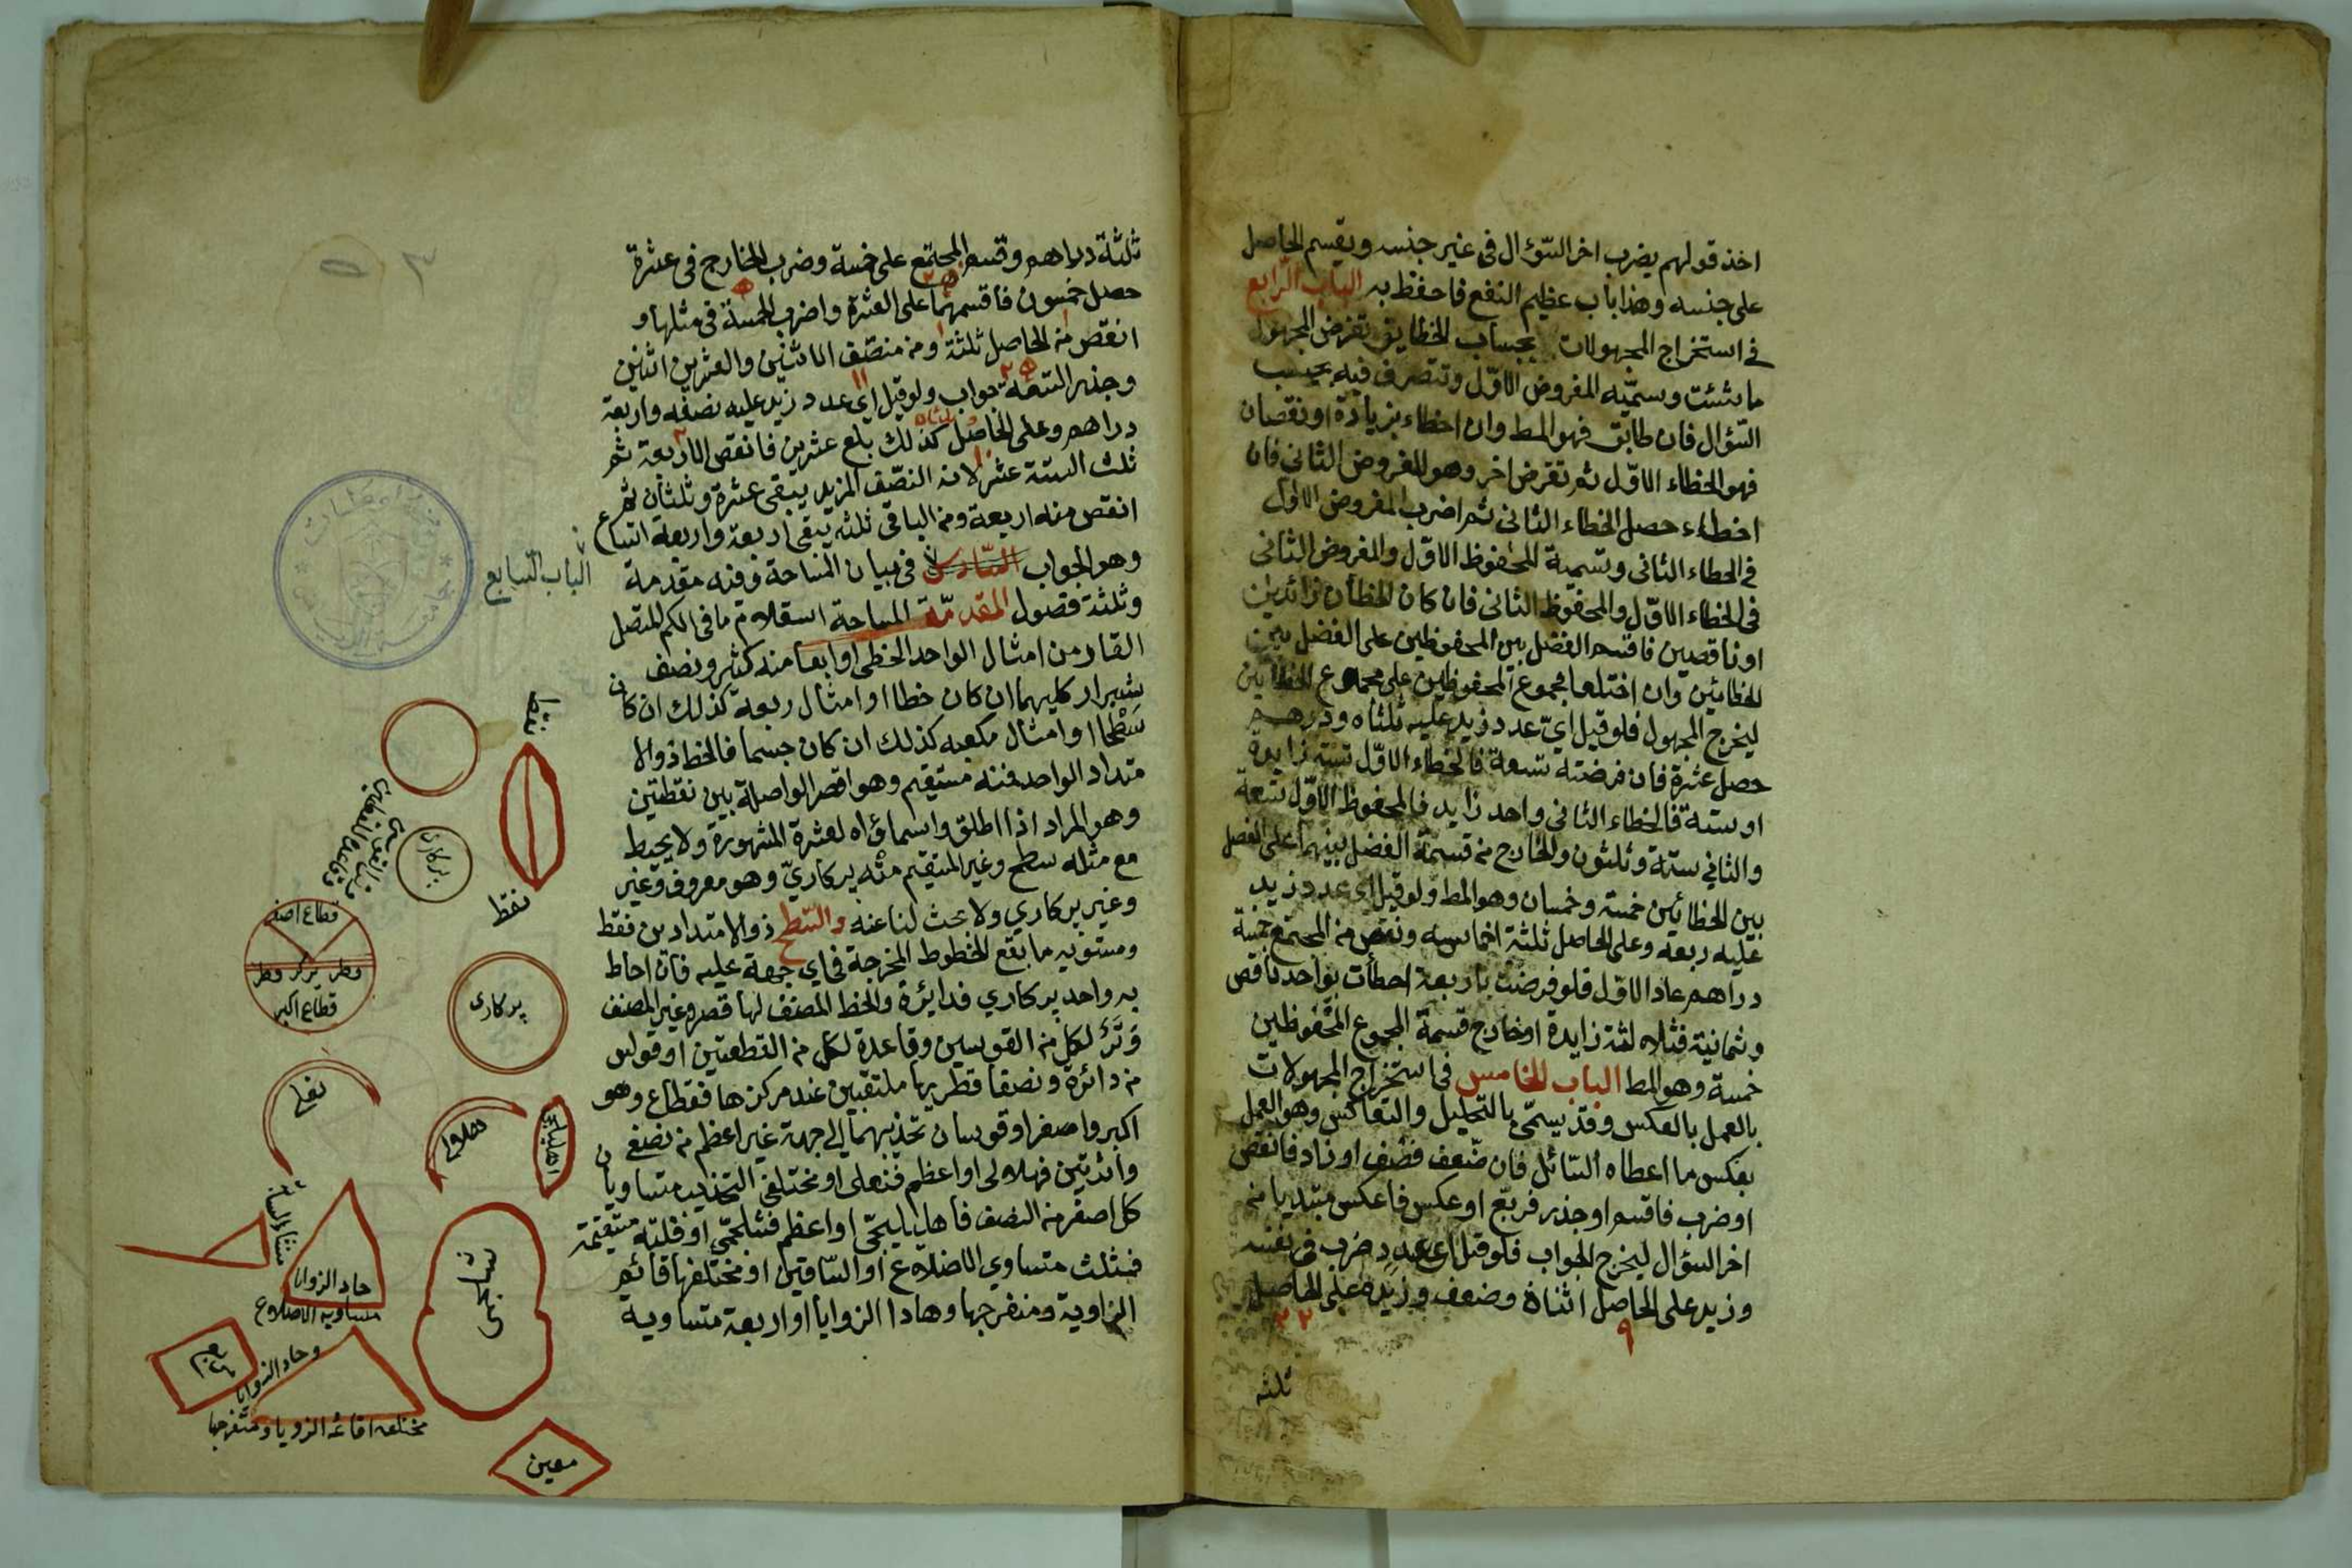 اخذ قولهم يضرب اخر السّؤال فى غير جنسه ويقسم الحاصل
على جنسه وهذا باب عظيم النفع فاحفظ به الباب الرّابع
فى استخراج المجهولات بحساب الخطاين تفرض المجهول
ما شئت وسمّيه المفروض الاوّل وتتصرف فيه بحسب
السّؤال فان طابق فهو المط وان اخطاء بزيادة او نقصان
فهو الخطاء الاوّل ثم تفرض اخر وهو المفروض الثانى فان
اخطاء حصل الخطاء الثانى ثم اضرب المفروض الاوّل
فى الخطاء الثانى وتسمية المحفوظ الاوّل والمفروض الثانى
فى الخطاء الاوّل والمحفوظ الثانى فان كان الخطأن زائدين
او ناقصين فاقسم الفضل بين المحفوظين على الفضل بين
الخطائين وان اختلفا مجموع المحفوظين على مجموع الخطائين
ليخرج المجهول فلو قيل ايّ عدد زيد عليه ثلثاه ودرهم
حصل عشرة فان فرضته تسعة فالخطاء الاوّل ستة زايدة
او ستة فالخطاء الثانى واحد زايد فالمحفوظ الاوّل تسعة
والثاني ستة وثلثون والخارج من قسمة الفضل بينهما على الفصل
بين الخطائين خمسة وخمسان وهو المط ولو قيل اى عدد زيد
عليه ربعه وعلى الحاصل ثلثة اخماسه ونقص من المجتمع خمسة
دراهم عاد الاوّل فلو فرضت باربعة اخطأت بواحد ناقص
وثمانية فثلاه لثة زايدة اوخارج قسمة المجموع المحفوظين
خمسة وهو المط الباب الخامس فى استخراج المجهولات
بالعمل بالعكس وقد يسمّى بالتحليل والتعاكس وهو العمل
بعكس ما اعطاه السّائل فان ضّعف فنصّف او زاد فانقص
او ضرب فاقسم او جذر فربّع او عكس فاعكس مبتديا من
اخر السؤال ليخرج الجواب فلو قيل اى عدد ضرب فى نفسه
وزيد على الحاصل اثناة وضعف وزيده على الحاصل
٩
٢٢
ثلثه
ثلثة دراهم وقسم المجتمع على خمسة وضرب الخارج فى عشرة
حصل خمسون فاقسمهما على العشرة واضرب الخمسة فى مثلها و
انقص من الحاصل ثلثة ومن منصّف الماتنين والعشرين اثنين
وجذر التسعة جواب ولو قيل اى عدد زيد عليه نصفه واربعة
دراهم وعلى الحاصل كذلك بلغ عشرين فانقص الاربعة ثم
ثلث الستة عشر لانه النصّف المزيد يبقى عشرة وثلثان ثم
انقص منه اربعة ومن الباقى ثلثه يبقى اربعة واربعة اتساع
وهو الجواب السّادس فى بيان المساحة وفنه مقدمة
الباب السّابع
وثلثة فصول المقدمّة المساحة اسقلام ما فى الكم المتصل
القار من امثال الواحد الخطى او ابعاضه كثر ونصف
شبر او كليهما ان كان خطا او امثال ربعه كذلك ان كان
سَطْحا او امثال مكعبه كذلك ان كان جسما فالخط ذو الا
متداد الواحد فمنه مستقيم وهو اقصر الواصلة بين نقطتين
وهو المراد اذا اطلق واسماؤاه لعشرة المشهورة ولا يحيط
مع مثله سطح وغير المستقيم منْه پركاريّ وهو معروف وغير
وغير پركاري ولا بحث لنا عنه والسّطح ذو الامتدادين فقط
ومستويه ما يقع الخطوط المخرجة فى اي جهة عليه فان احاط
به واحد پركاري فدايئرة والخط المصنف لها قصره غير المصنف
وَتَرٌ لكل من القوسين وقاعدة لكل من القطعتين او قوس
من دائرة ونصفا قطريها ملتقيين عند مركزها فقطاع وهو
اكبر واصغر او قوسان تحذيبهما الى جهة غير اعظم من نصفى
وأئرتين فهلالى او اعظم فنعلى او مختلفى التحذيب متساويان
كل اصغر من النصف فاهليليجّى او اعظم فشلجمّى او فلثة مستقيمة
فمثلث متساوي الاضلاع او السّاقين او مختلفها قائم
الزاوية ومنفرجها وهادا الزوايا او اربعة متساويه
نقط
پركارى
قطاع اصغر
قطر مركز قطر
قطاع اكبر
پركارى
حاد الزوايا
متساويه الاضلاع
مربع
وحاد الزوايا
مختلفه اقائمه الزويا ومنفرجها
معين